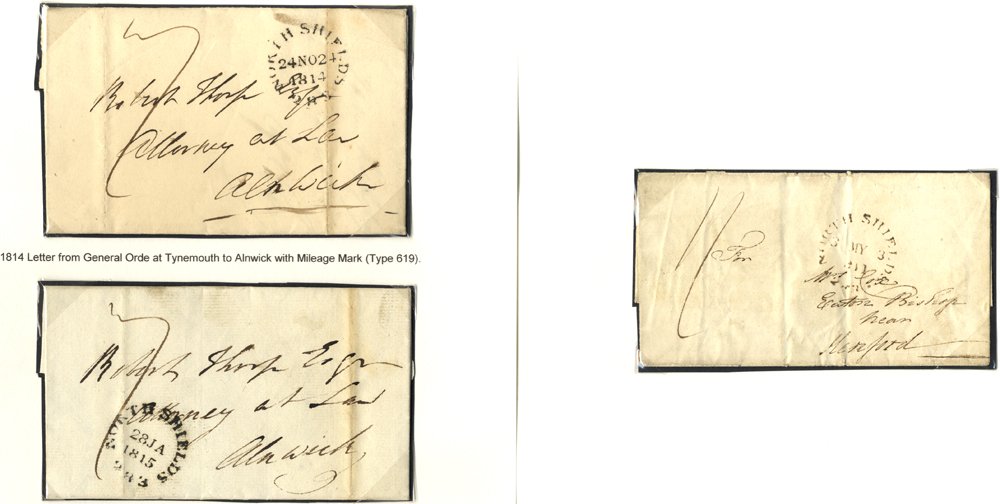 7
NORTH SHIELDS
24NO24
1814
Robert Thorp Esqr
Attorney at Law
Alnwick
1814 Letter from General Orde at Tynemouth to Alnwick with Mileage Mark (Type 619).
7
Robert Thorp Esqr
Attorney at Law
Alnwick
NORTH SHIELDS
28JA
1815
283
11
For
NORTH SHIELDS
MY 3
Mrs
Eaton Bishop
near
Hereford